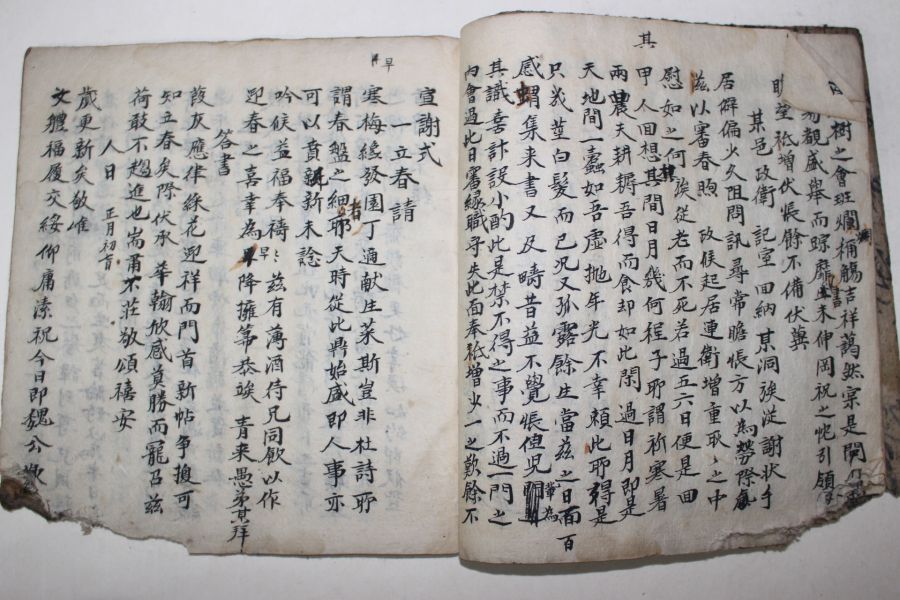 其
樹之會班爛稱觴吉祥藹然宗是閑
易觀感舉而踪靡未伸罔祝之忱引領
盼望祗增伏悵餘不備伏與
某邑政衛 記室回納 某洞族從謝狀手
居僻偏火久阻問訊尋常瞻悵方以為勞際
玆以審春煦 政候起居連衛增重取之中
慰如之何族從老而不死若過五六日便是回
甲人回想其間日月幾何程子耶謂祈寒暑
兩農夫耕耨吾得而食却如此閑過日月即是
天地間一蠹如吾虛抛年光不幸頼此耶得是
只羙莖白髮而已况又孤露餘生當玆之日面百
感蝟集来書又及疇昔益不覺悵俔児
其識喜計設小酌此是禁不得之事而不過一門之
內會過此日審緣職子失此面奉祗增少一之歎餘不
早
宣謝式 立春請
寒梅綻發園丁適献生菜斯豈非杜詩耶
謂春盤之細耶天時從此鼎始感即人事亦
可以賁新未諗
吟候益福奉禱玆有薄酒待兄同飲以作
迎春之喜幸為早降擁篲恭竢 青来愚弟某拜
答書
葭灰應律綵花迎祥而門首新帖争換可
知立春矣際伏承 華翰欣感萸勝而寵召玆
荷敢不趨進也耑甭不莊敬頌禧安
人日 正月初吉
歲更新矣敬惟
文軆福履交綏仰庸溸祝今日即魏公